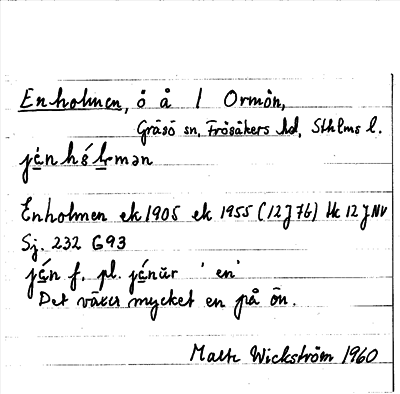 Enholmen, ö å / Ormön,
Gräsö sn, Frösåkers hd, Sthlms l.
jénhólmən
Enholmen ek 1905 ek 1955 (12J7b) Hk 12J NV
Sj. 232 G93
jén f. pl. jénŭr 'en'
Det växer mycket en på ön.
Malte Wickström 1960